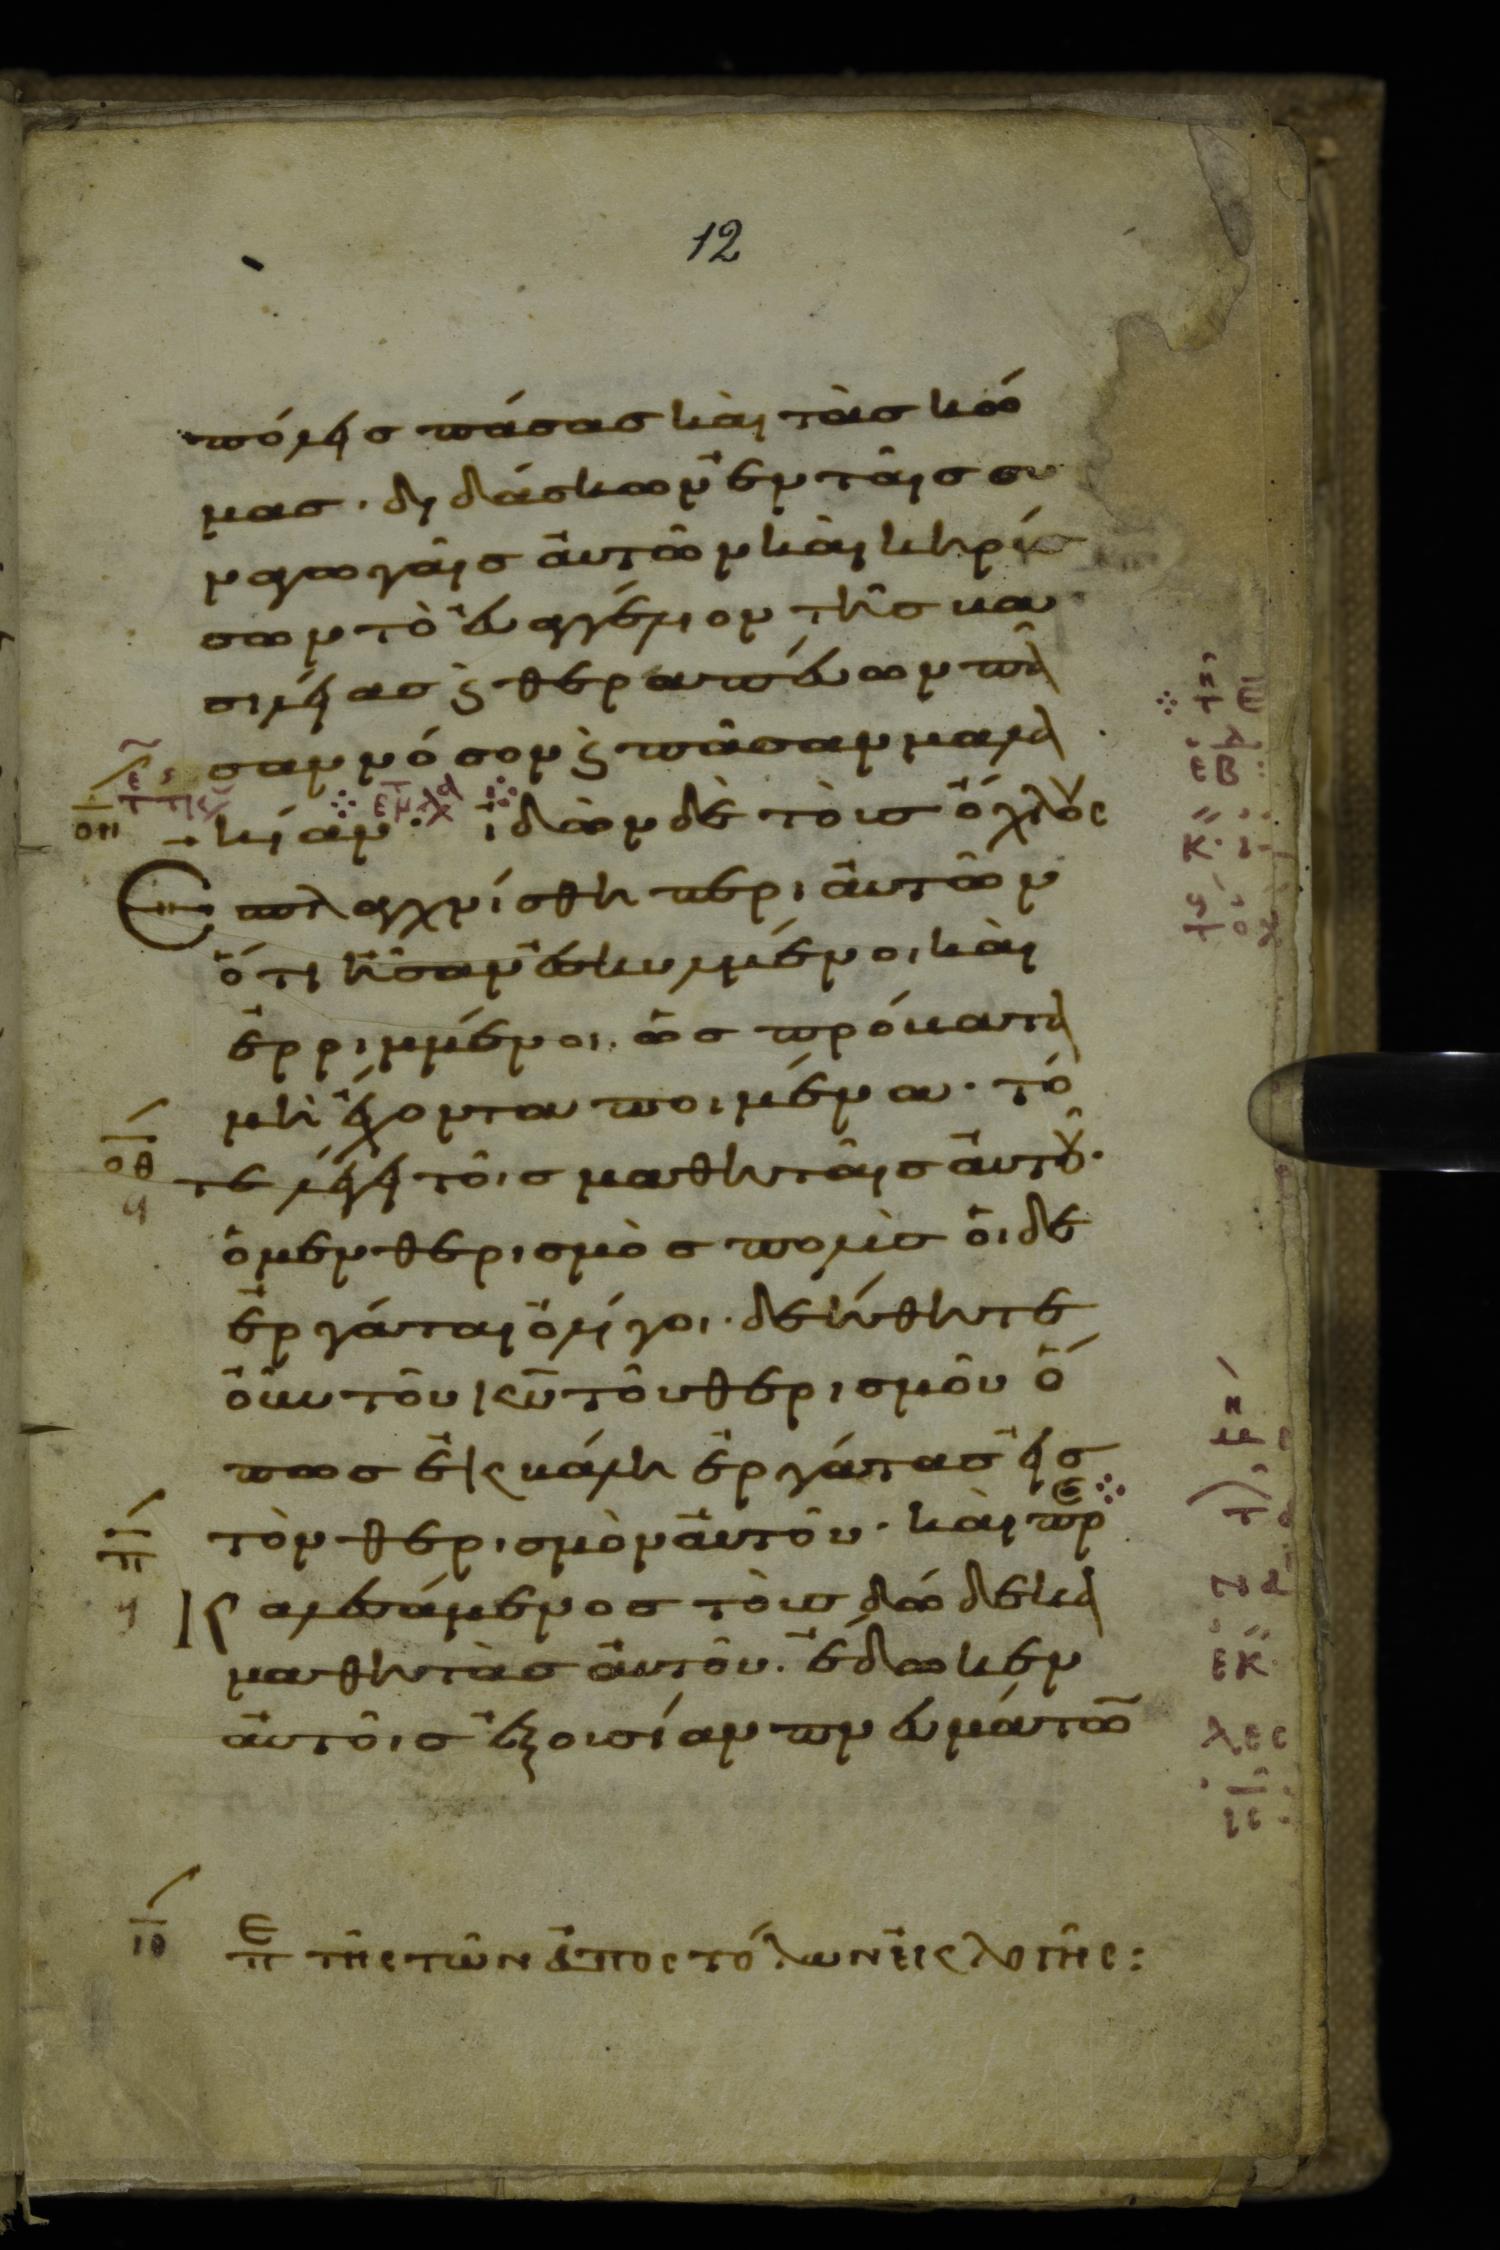 12
πόλεις πάσας και τὰς κώ
μας· διδάσκων ἐν ταῖς συ
ναγωγαῖς αὐτῶν καὶ κηρύσ
σων τὸ εὐαγγέλιον τῆς βα
σιλείας ϗ θεραπεύων πᾶ
σαν νόσον ϗ πᾶσαν μαλα
κίαν· ἰδὼν δὲ τοὺς ὄχλους
Εσπλαγχνίσθη περι αὐτῶν
ὅτι ἦσαν ἐσκυλμένοι καὶ
ἐρριμμένοι. ὡς πρόβατα
μὴ ἔχοντα ποιμένα· τό
τε λέγει τοῖς μαθηταῖς αὐτοῦ·
ὁ μεν θερισμὸς πολὺς ὁι δε
ἐργάται ὀλίγοι· δεήθητε
οὖν τοῦ κῦ τοῦ θερισμοῦ ὅ
πως ἐκβάλη ἐργάτας εἰς
τὸν θερισμὸν αὐτοῦ· καὶ πρ
οσ
καλεσάμενος τοὺς δώδεκα
μαθητὰς αὐτοῦ. ἔδωκεν
αὐτοῖς ἐξουσίαν πνευμάτω
οη
οθ
π
ιθ
πε τῆς τῶν ἀποστόλων ἐκλογῆς: